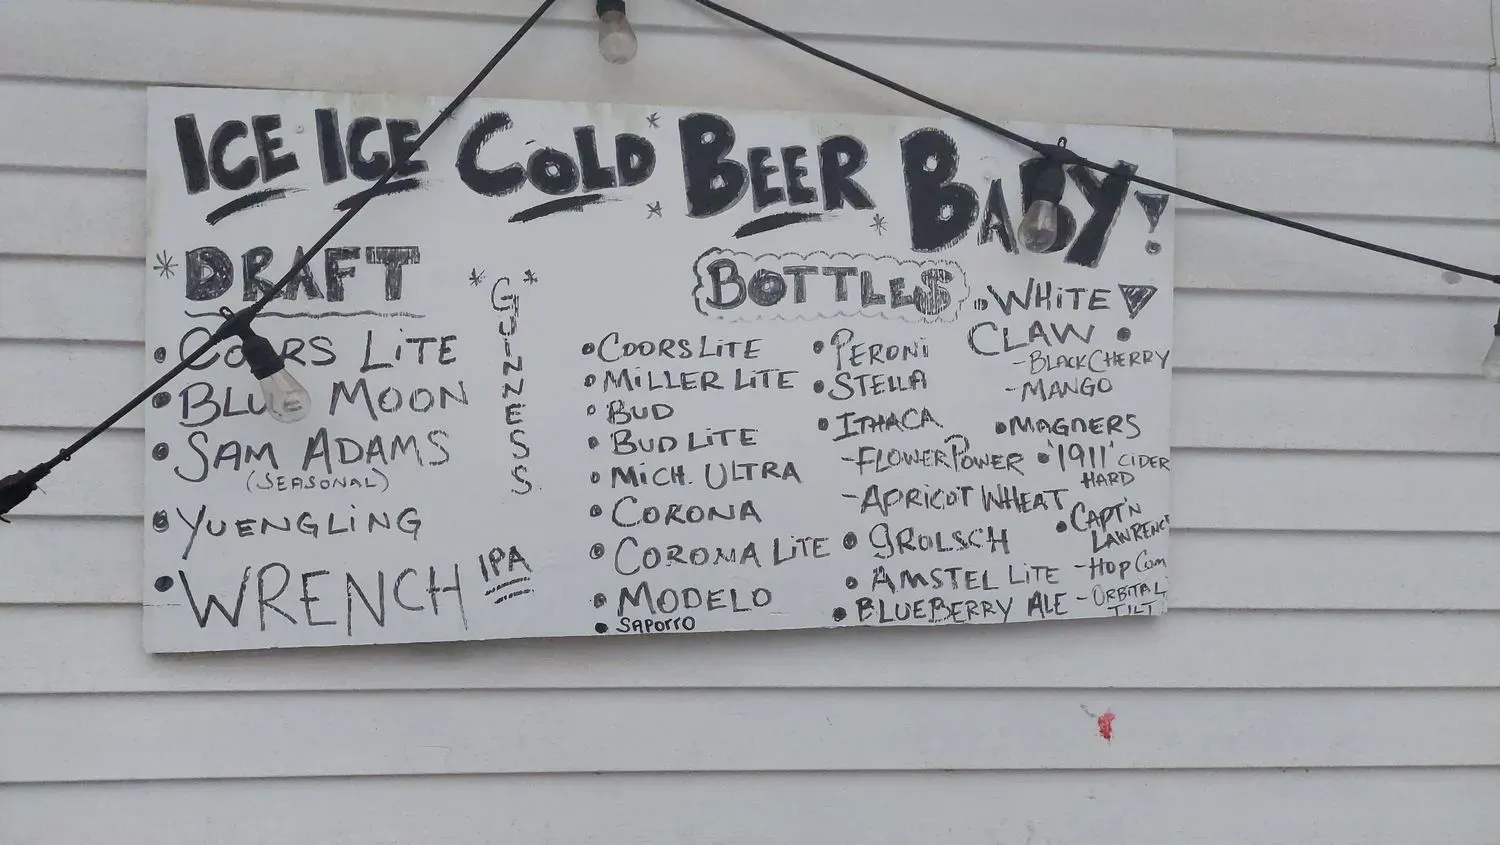 ICE ICE COLD BEER BABY!
*DRAFT
• COORS LITE
• BLUE MOON
• SAM ADAMS
(SEASONAL)
• YUENGLING
• WRENCH IPA
* GUINNESS *
BOTTLE$
• COORS LITE
• MILLER LITE
• BUD
• BUD LITE
• MICH. ULTRA
• CORONA
• CORONA LITE
• MODELO
• SAPORRO
• PERONI
• STELLA
• ITHACA
-FLOWER POWER
-APRICOT WHEAT
• GROLSCH
• AMSTEL LITE
• BLUEBERRY ALE
• WHITE
CLAW •
-BLACK CHERRY
-MANGO
• MAGNERS
• '1911' CIDER
HARD
• CAPT'N
LAWRENCE
-HOP COM
-ORBITAL
TILT